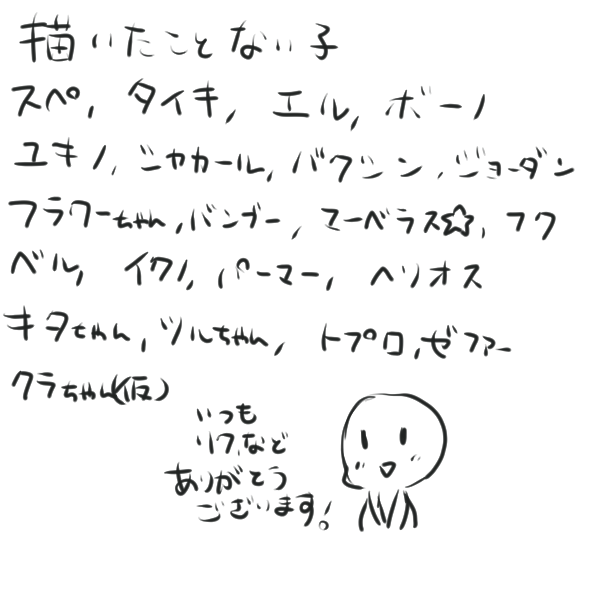 描いたことない子
スペ, タイキ, エル, ボーノ
ユキノ, シャカール, バクシン, ジョーダン
フラワーちゃん, バンブー, マーベラス☆, フク
ベル, イクノ, パーマー, ヘリオス
キタちゃん, ツルちゃん, トプロ, ゼファー
クラちゃん(仮)
いつも
リク,など
ありがとう
ございます!